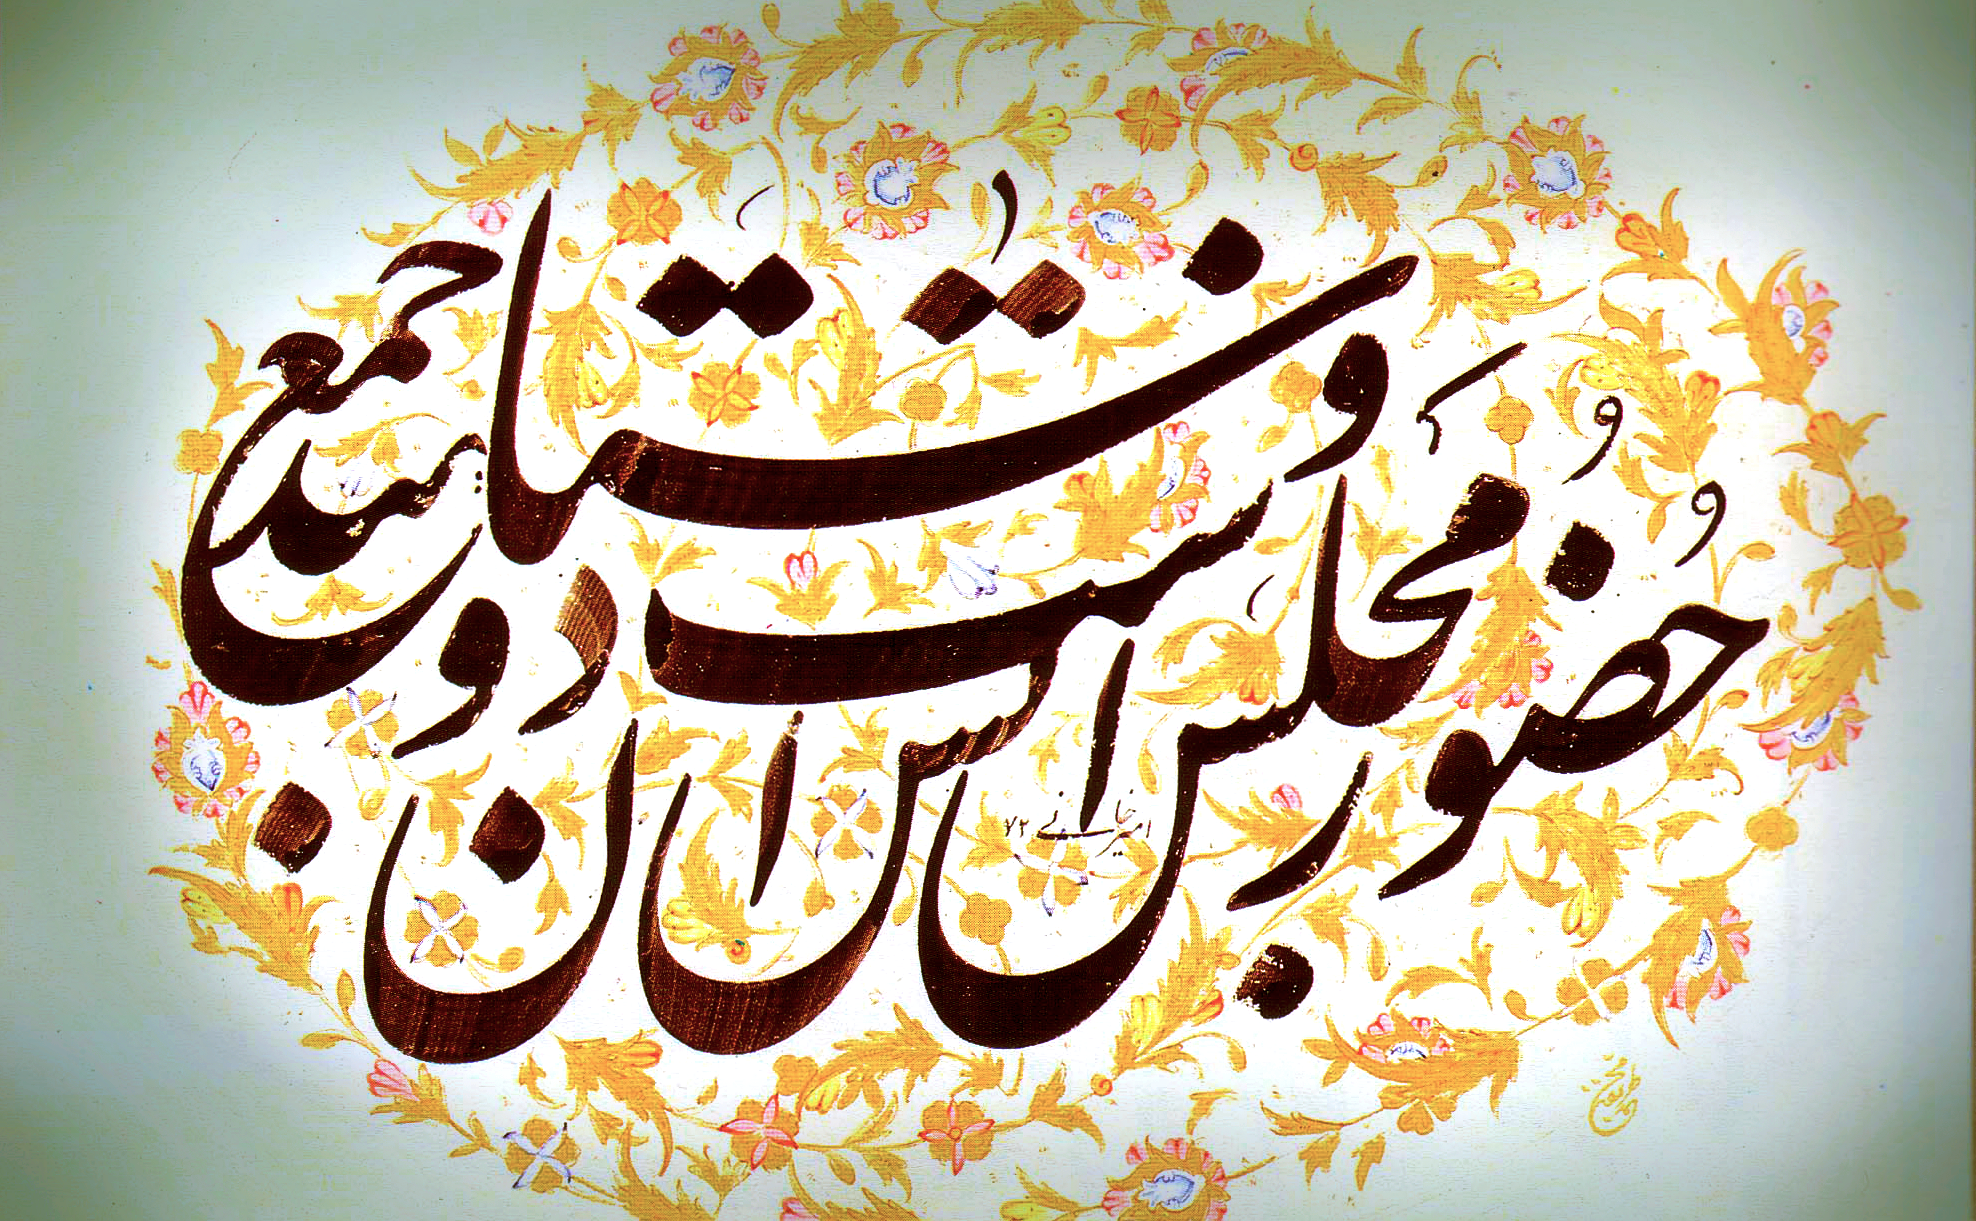 حضور مجلس انس است و دوستان جمعند
امیرخانی ۷۲